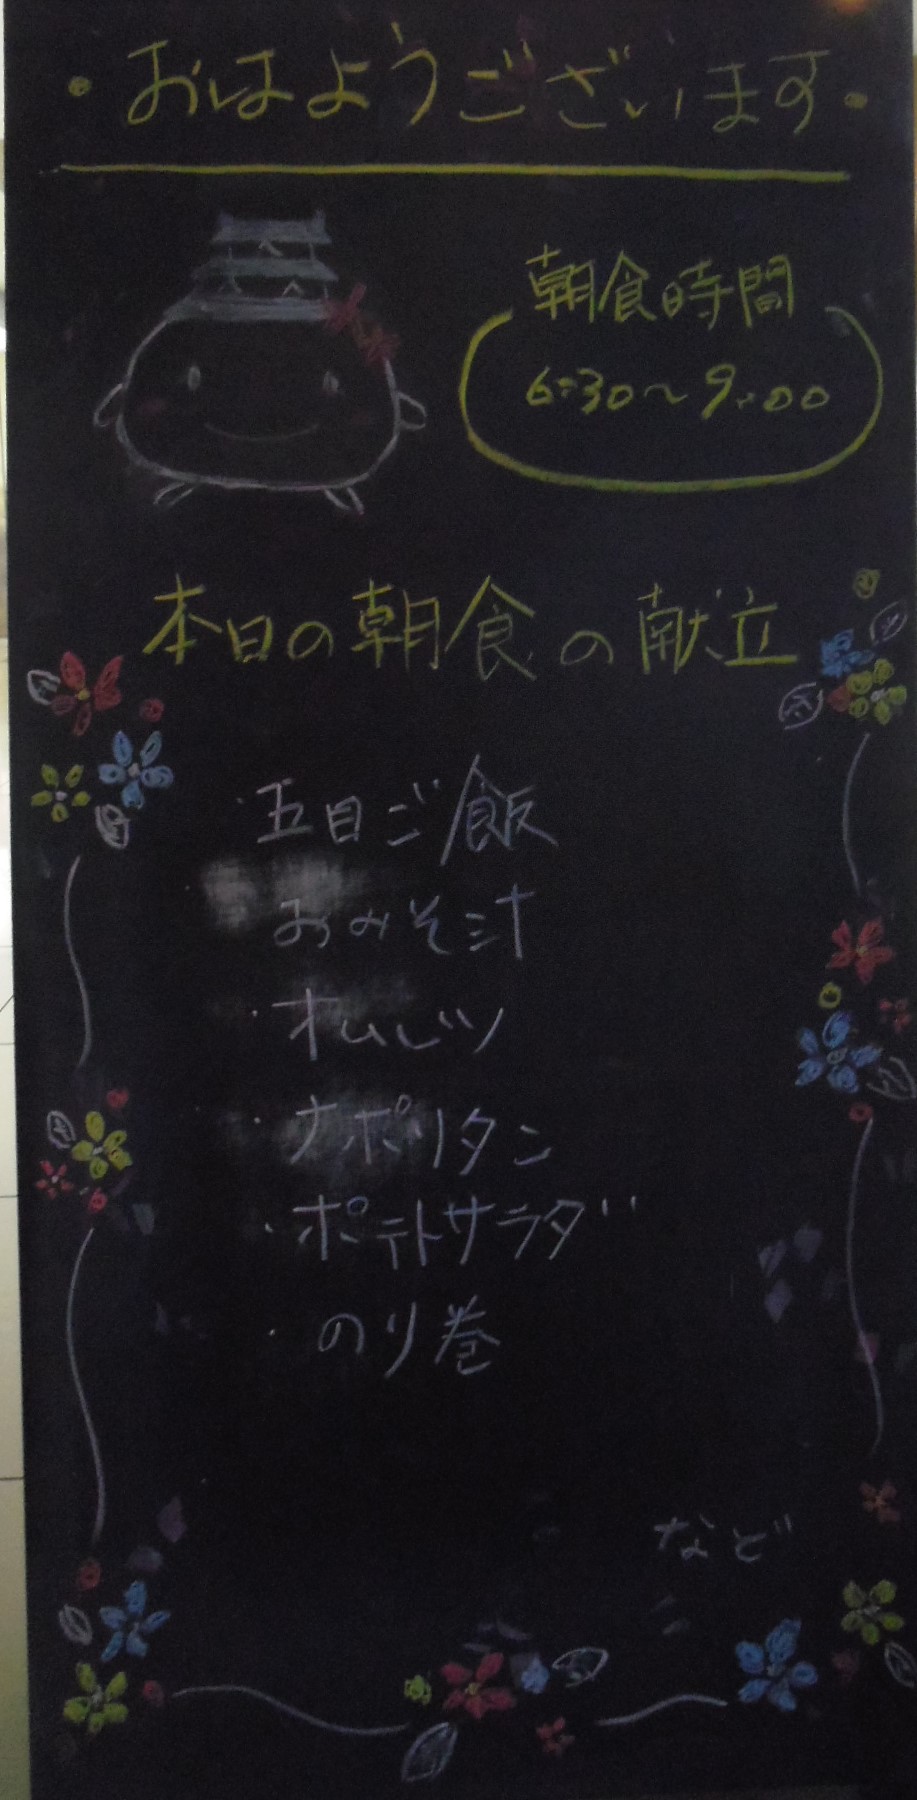 ・おはようございます・
朝食時間
6:30～9:00
本日の朝食の献立
・五目ご飯
・おみそ汁
・オムレツ
・ナポリタン
・ポテトサラダ
・のり巻
など